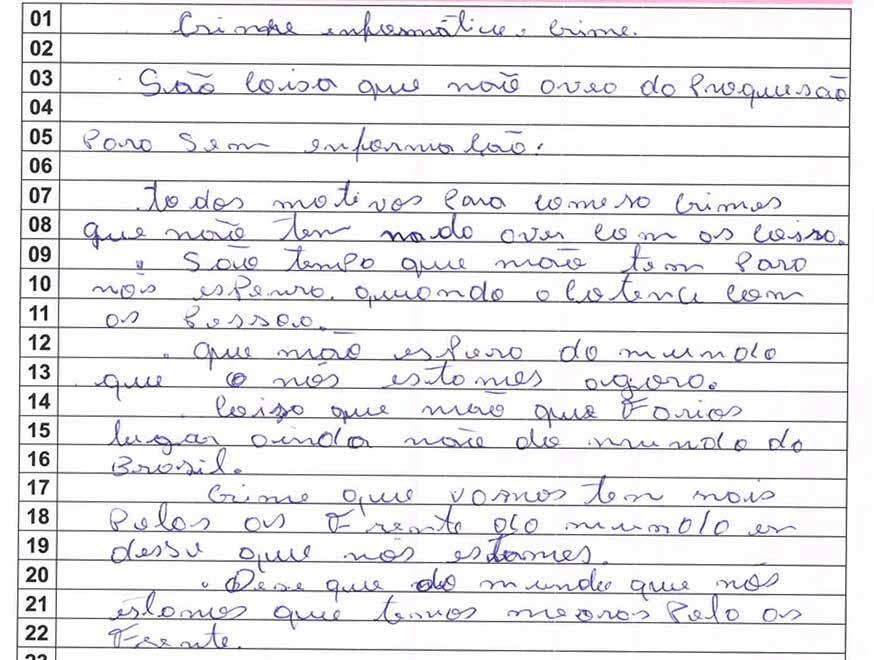 01 Crimre enformática. Crime.
02
03 São Coisa que não oveo do Proquesão
04
05 Para Sem enformação.
06
07 todos motivos para comeso Crimes
08 que não tem nado over com os coiso.
09 São tempo que não tem Paro
10 nóis espeuro. quondo o Cotence com
11 os Pessoo.
12 que não espero do mundo
13 que o nós estomos agoro.
14 Coizo que não que Farios
15 lugar oinda não do mundo do
16 Brosil.
17 Crime que vomos tem mois
18 Pelos os Frente do mundo en
19 desse que nós estomes.
20 Dese que do mundo que nós
21 estomos que temos Pelo os
22 Frente.